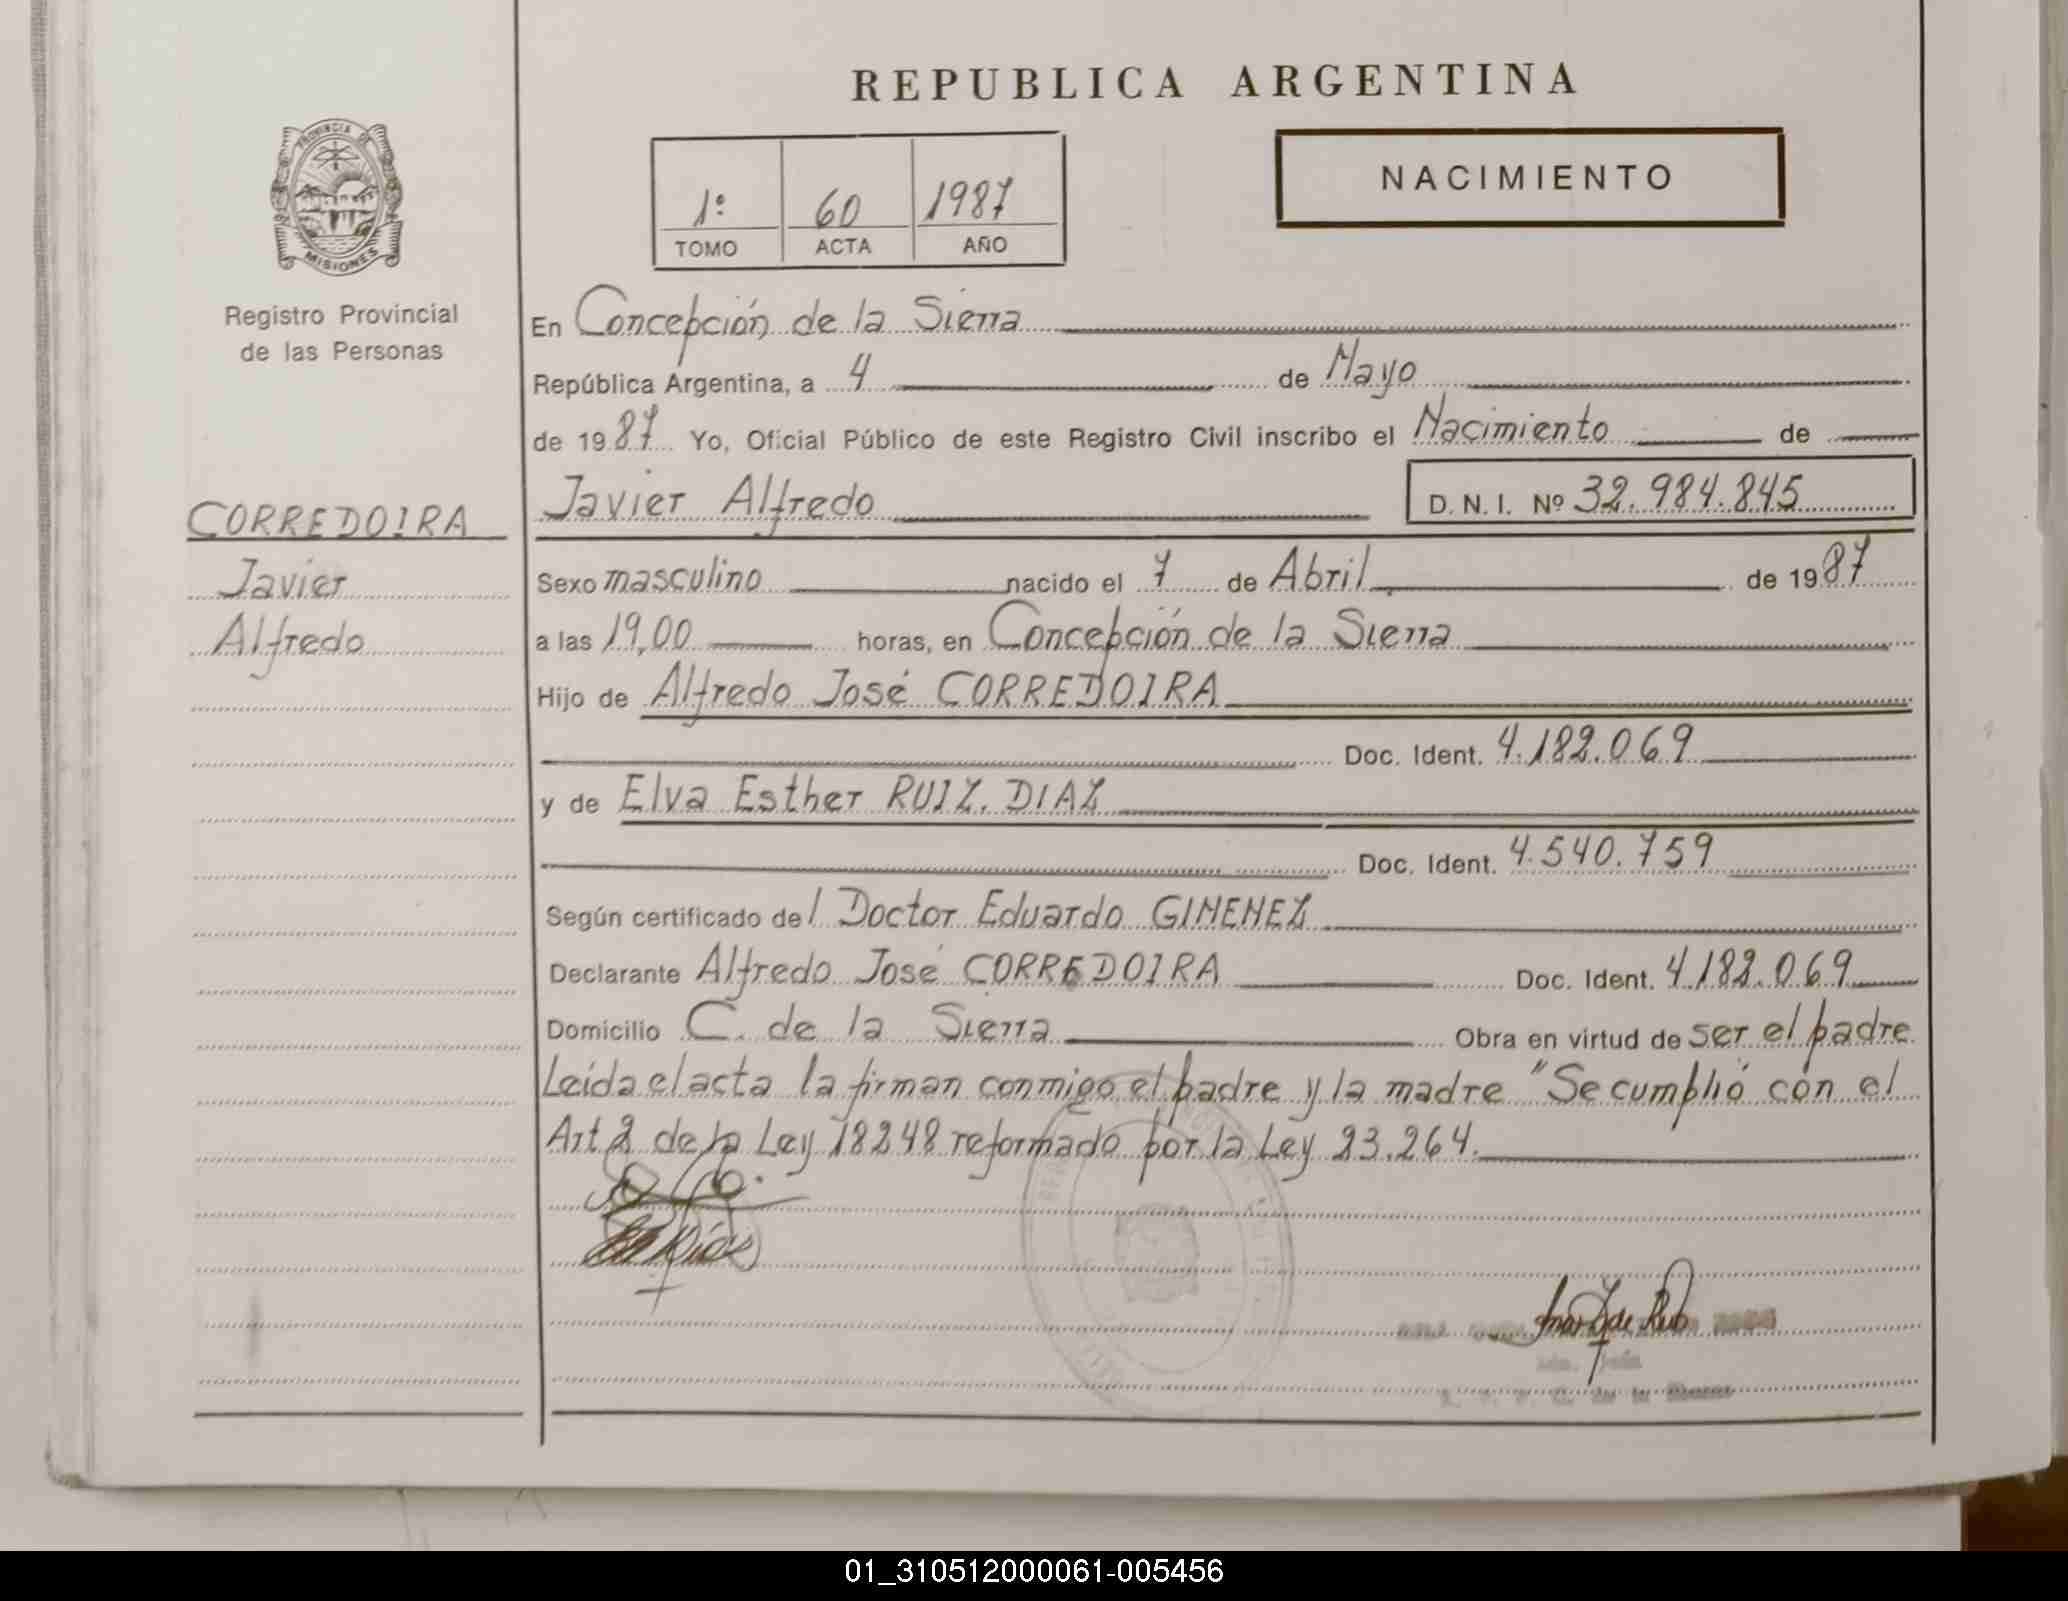 REPUBLICA ARGENTINA
PROVINCIA DE
MISIONES
Registro Provincial
de las Personas
1º 60 1987
TOMO ACTA AÑO
NACIMIENTO
En Concepción de la Sierra
República Argentina, a 4 de Mayo
de 1987 Yo, Oficial Público de este Registro Civil inscribo el Nacimiento de
CORREDOIRA
Javier
Alfredo
Javier Alfredo D. N. I. Nº 32.984.845
Sexo masculino nacido el 7 de Abril de 1987
a las 19,00 horas, en Concepción de la Sierra
Hijo de Alfredo José CORREDOIRA
Doc. Ident. 4.182.069
y de Elva Esther RUIZ. DIAZ
Doc. Ident. 4.540.759
Según certificado del Doctor Eduardo GIMENEZ
Declarante Alfredo José CORREDOIRA Doc. Ident. 4.182.069
Domicilio C. de la Sierra Obra en virtud de ser el padre
Leída el acta la firman conmigo el padre y la madre "Se cumplió con el
Art 2 de la Ley 18248 reformado por la Ley 23.264.
01_310512000061-005456